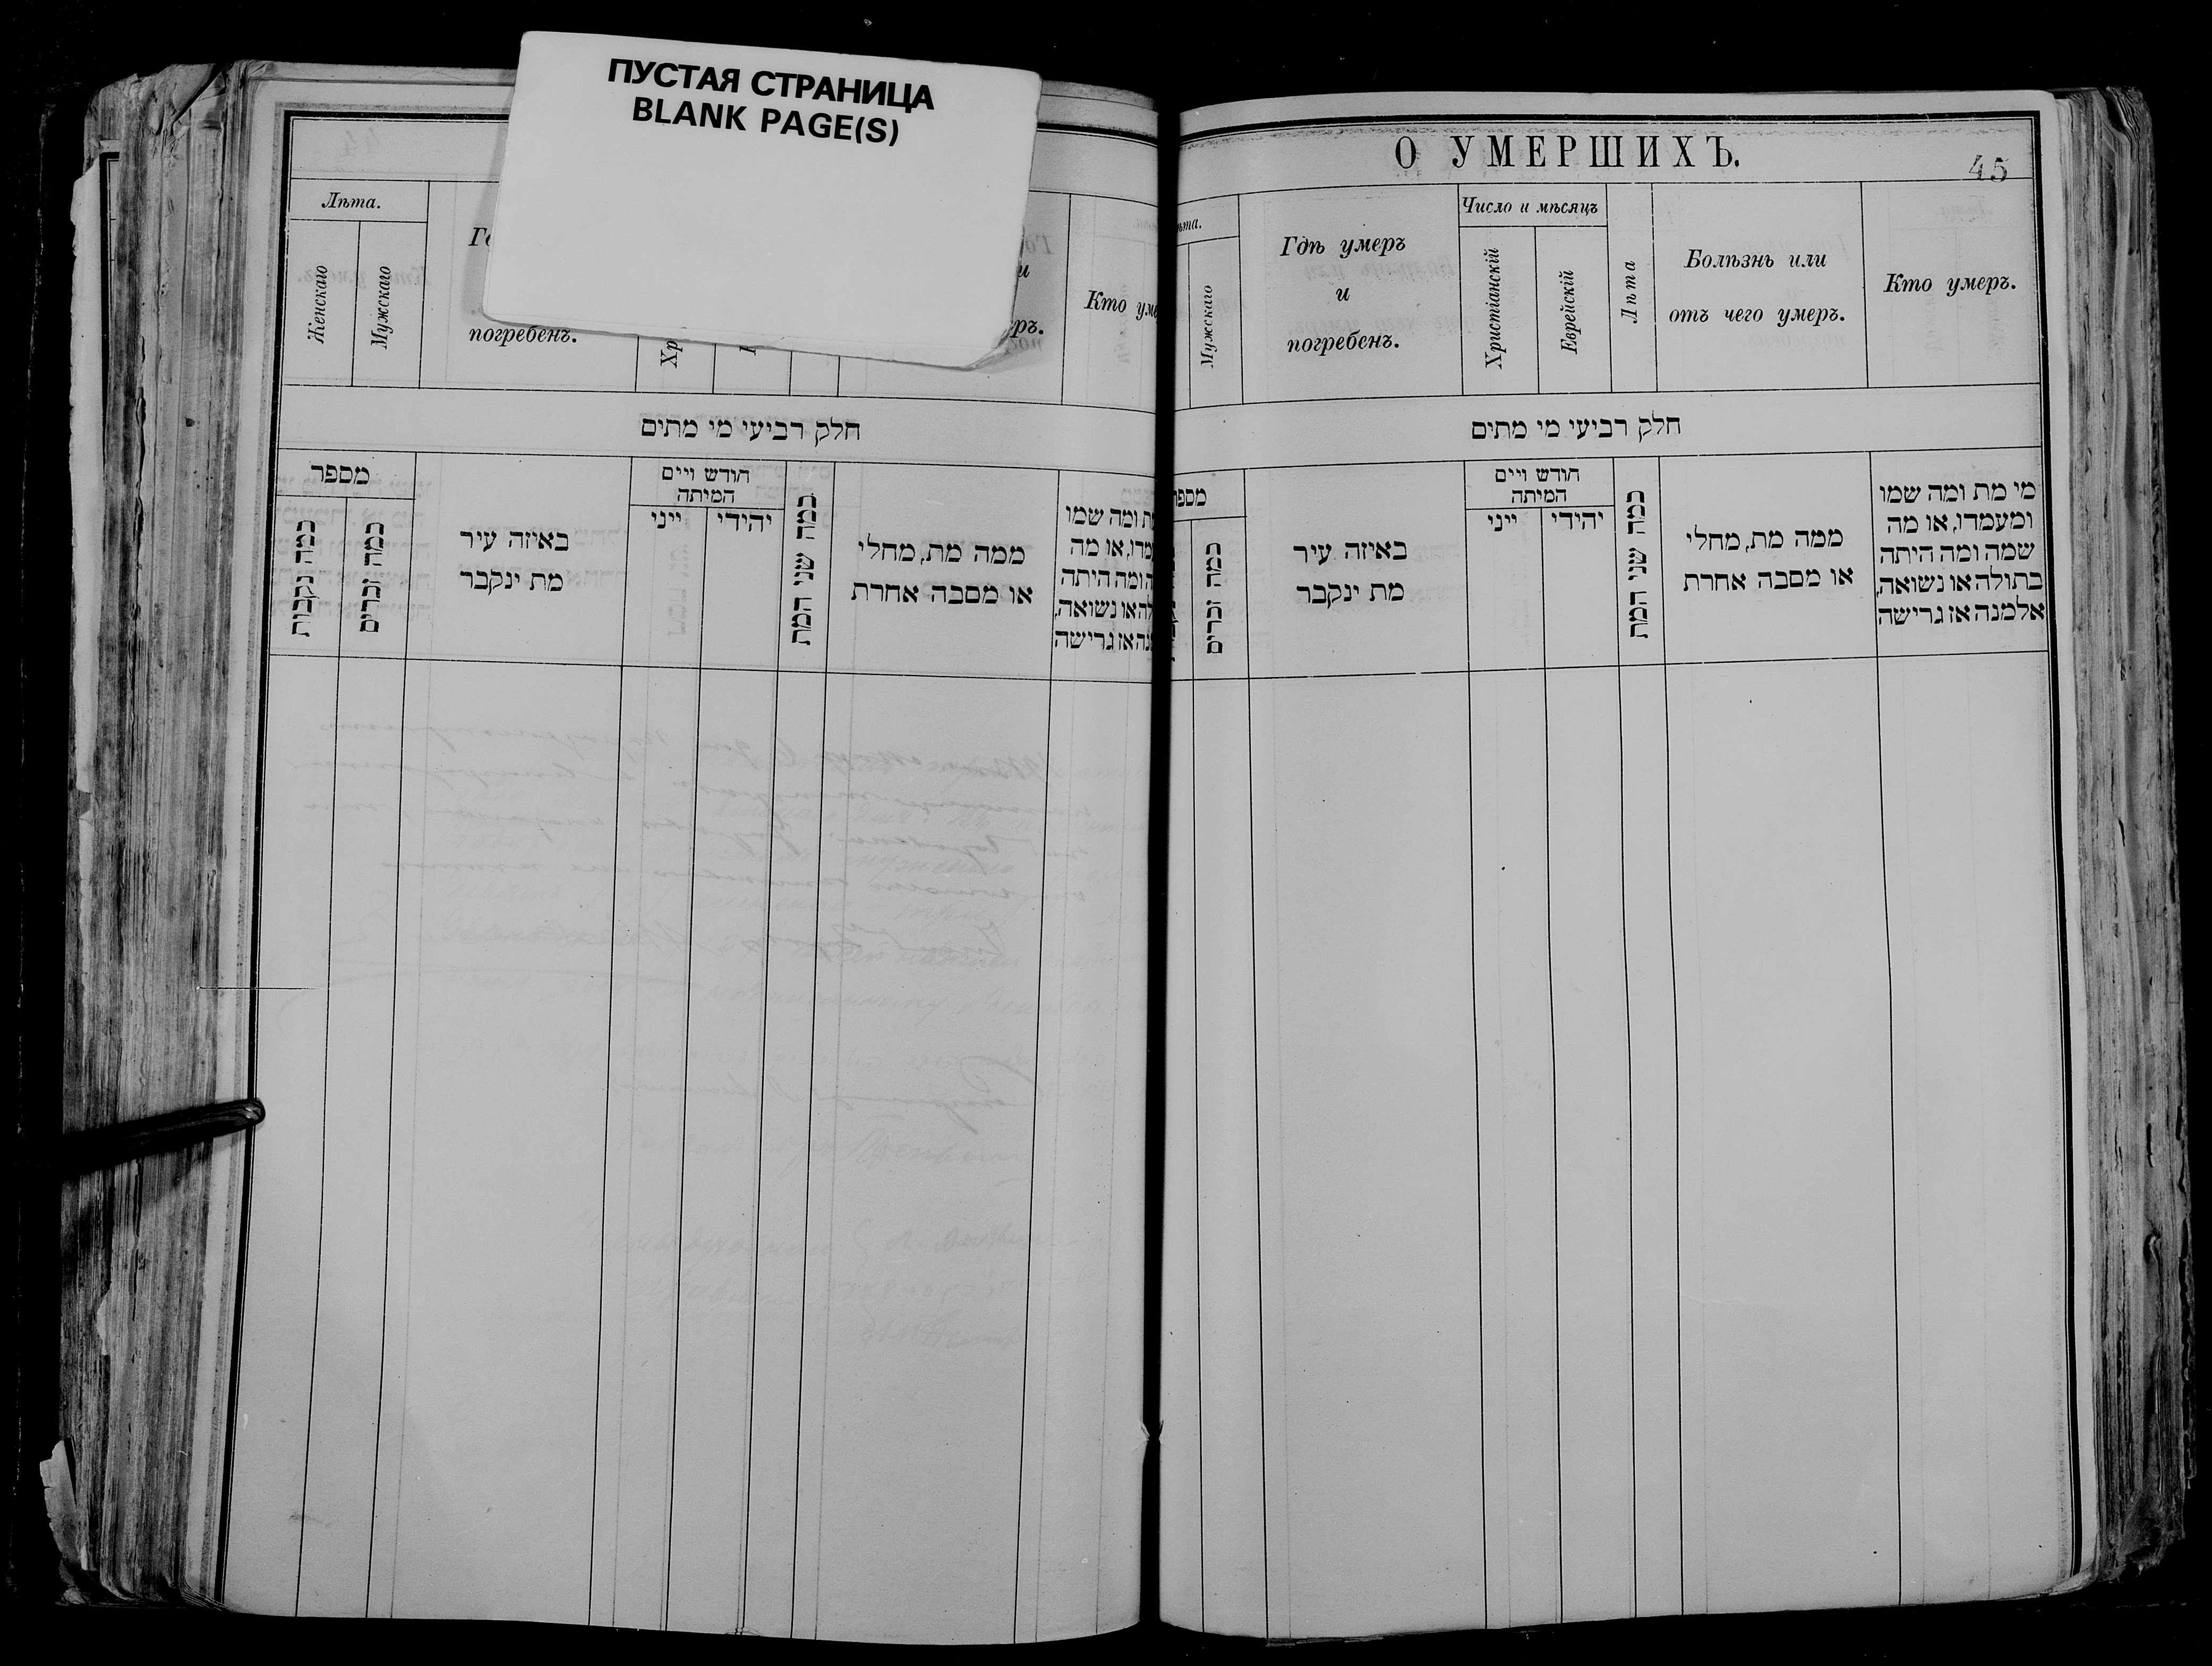 ПУСТАЯ СТРАНИЦА
BLANK PAGE(S)
Лѣта.
Женскаго
Мужскаго
погребенъ.
Кто
חלק רביעי מי מתים
מספר
כמה נקבות
כמה זכרים
באיזה עיר
מת ינקבר
חודש ויים
המיתה
ייני
יהידי
כמה שני המת
ממה מת, מחלי
או מסבה אחרת
ומה שמו
או מה
ומה היתה
או נשואה,
או גרישה
О УМЕРШИХЪ.
45
Мужскаго
Гдѣ умеръ
и
погребенъ.
Число и мѣсяцъ
Христіанскій
Еврейскій
Лѣта
Болѣзнь или
отъ чего умеръ.
Кто умеръ.
חלק רביעי מי מתים
כמה זכרים
באיזה עיר
מת ינקבר
חודש ויים
המיתה
ייני
יהידי
כמה שני המת
ממה מת, מחלי
או מסבה אחרת
מי מת ומה שמו
ומעמדו, או מה
שמה ומה היתה
בתולה או נשואה,
אלמנה אז גרישה